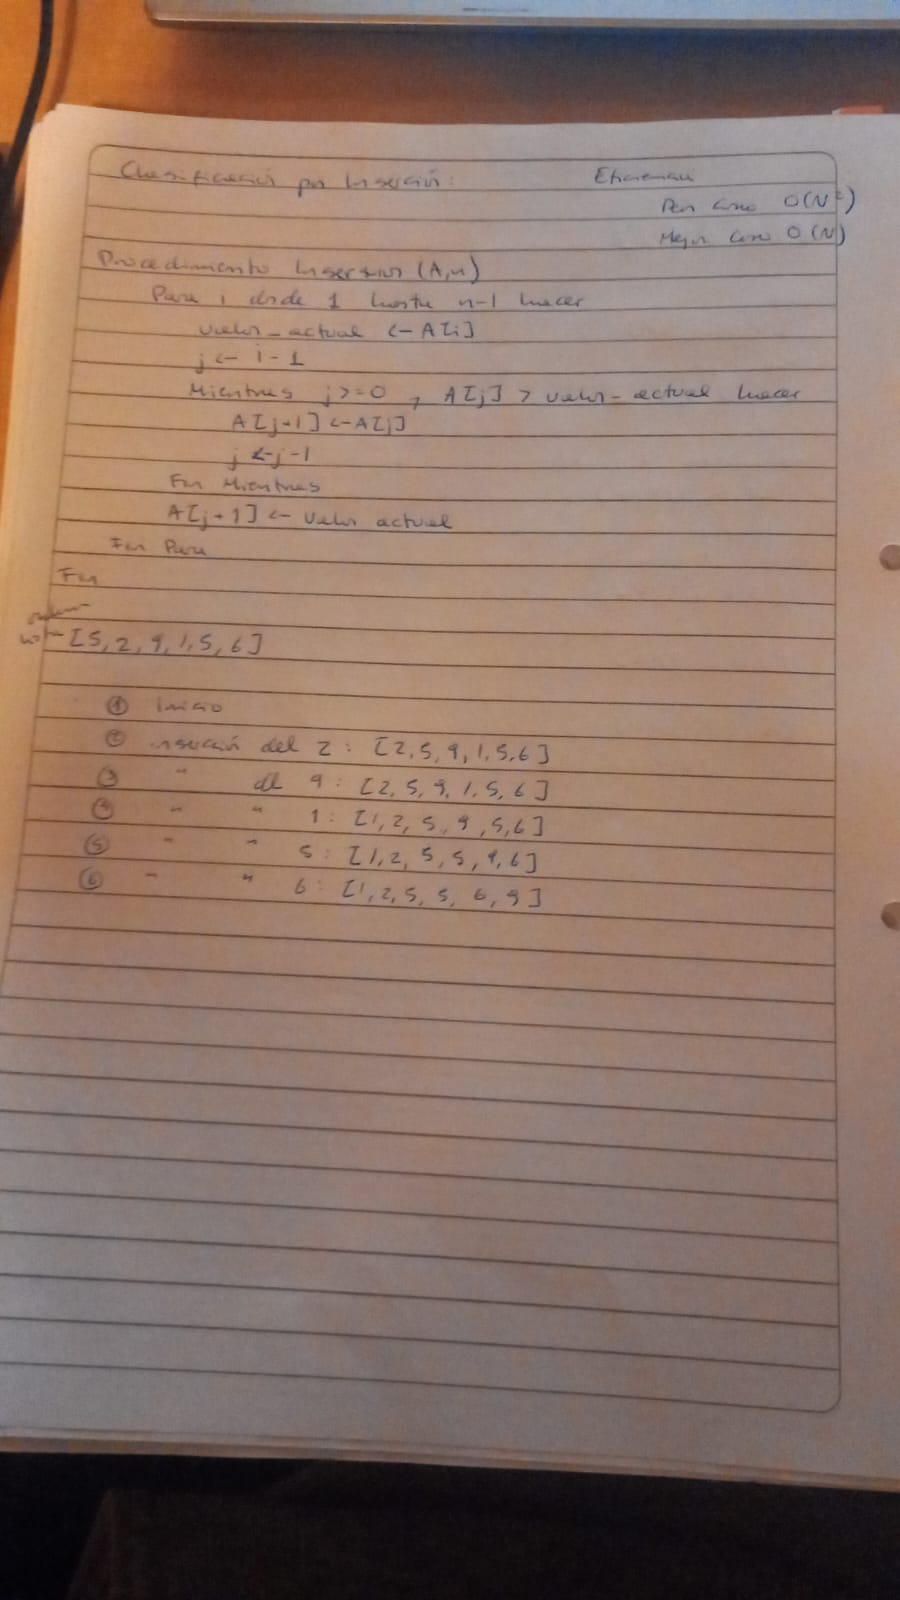 Clasificación por Inserción:
Eficiencia
Peor caso O(N²)
Mejor caso O(N)
Procedimiento Insercion (A,n)
Para i desde 1 hasta n-1 hacer
valor_actual <- A[i]
j <- i-1
Mientras j >= 0 , A[j] > valor_actual hacer
A[j+1] <- A[j]
j <- j-1
Fin Mientras
A[j+1] <- valor actual
Fin Para
Fin
[5, 2, 9, 1, 5, 6]
① Inicio
② inserción del 2: [2, 5, 9, 1, 5, 6]
③ " del 9: [2, 5, 9, 1, 5, 6]
④ " " 1: [1, 2, 5, 9, 5, 6]
⑤ " " 5: [1, 2, 5, 5, 9, 6]
⑥ " " 6: [1, 2, 5, 5, 6, 9]